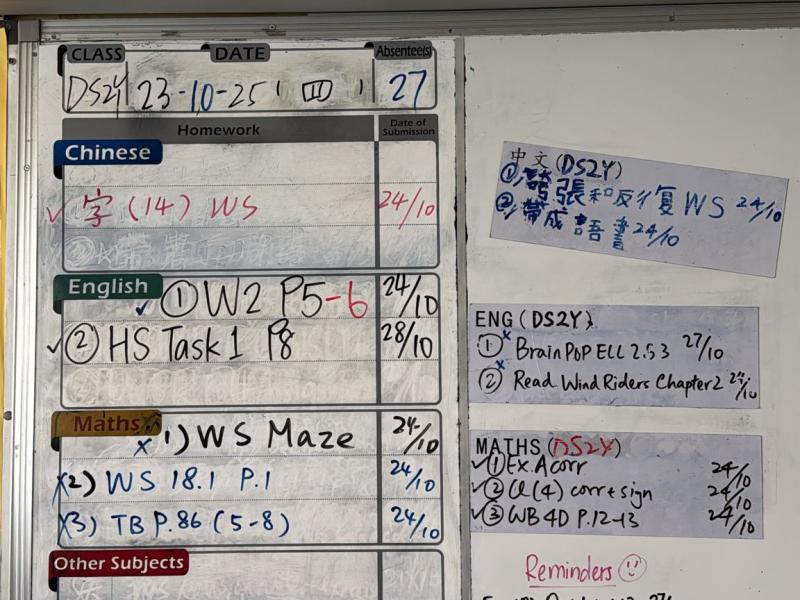 CLASS DATE Absentee(s)
23-10-25 (四) 27
Homework Date of Submission
Chinese
✓ 字 (14) WS 24/10
English
✓ ① W2 P5-6 24/10
✓ ② HS Task 1 P8 28/10
Maths
x 1) WS Maze 24/10
x 2) WS 18.1 P.1 24/10
x 3) TB P.86 (5-8) 24/10
Other Subjects
中文 (DS2Y)
① 誇張和反復 WS 24/10
② 帶成語書 24/10
ENG (DS2Y)
x ① BrainPoP ELL 2.5.3 27/10
x ② Read Wind Riders Chapter 2
MATHS (DS2Y)
✓ ① Ex.A corr 24/10
✓ ② (4) corr + sign 24/10
✓ ③ WB 4D P.12-13 24/10
Reminders